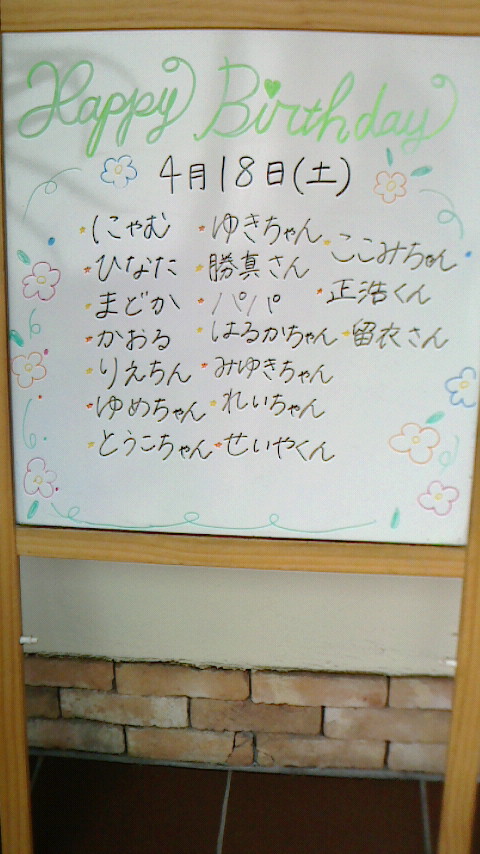 Happy Birthday
4月18日(土)
にゃむ
ひなた
まどか
かおる
りえちん
ゆめちゃん
とうこちゃん
ゆきちゃん
勝真さん
パパ
はるかちゃん
みゆきちゃん
れいちゃん
せいやくん
ここみちゃん
正浩くん
留衣さん